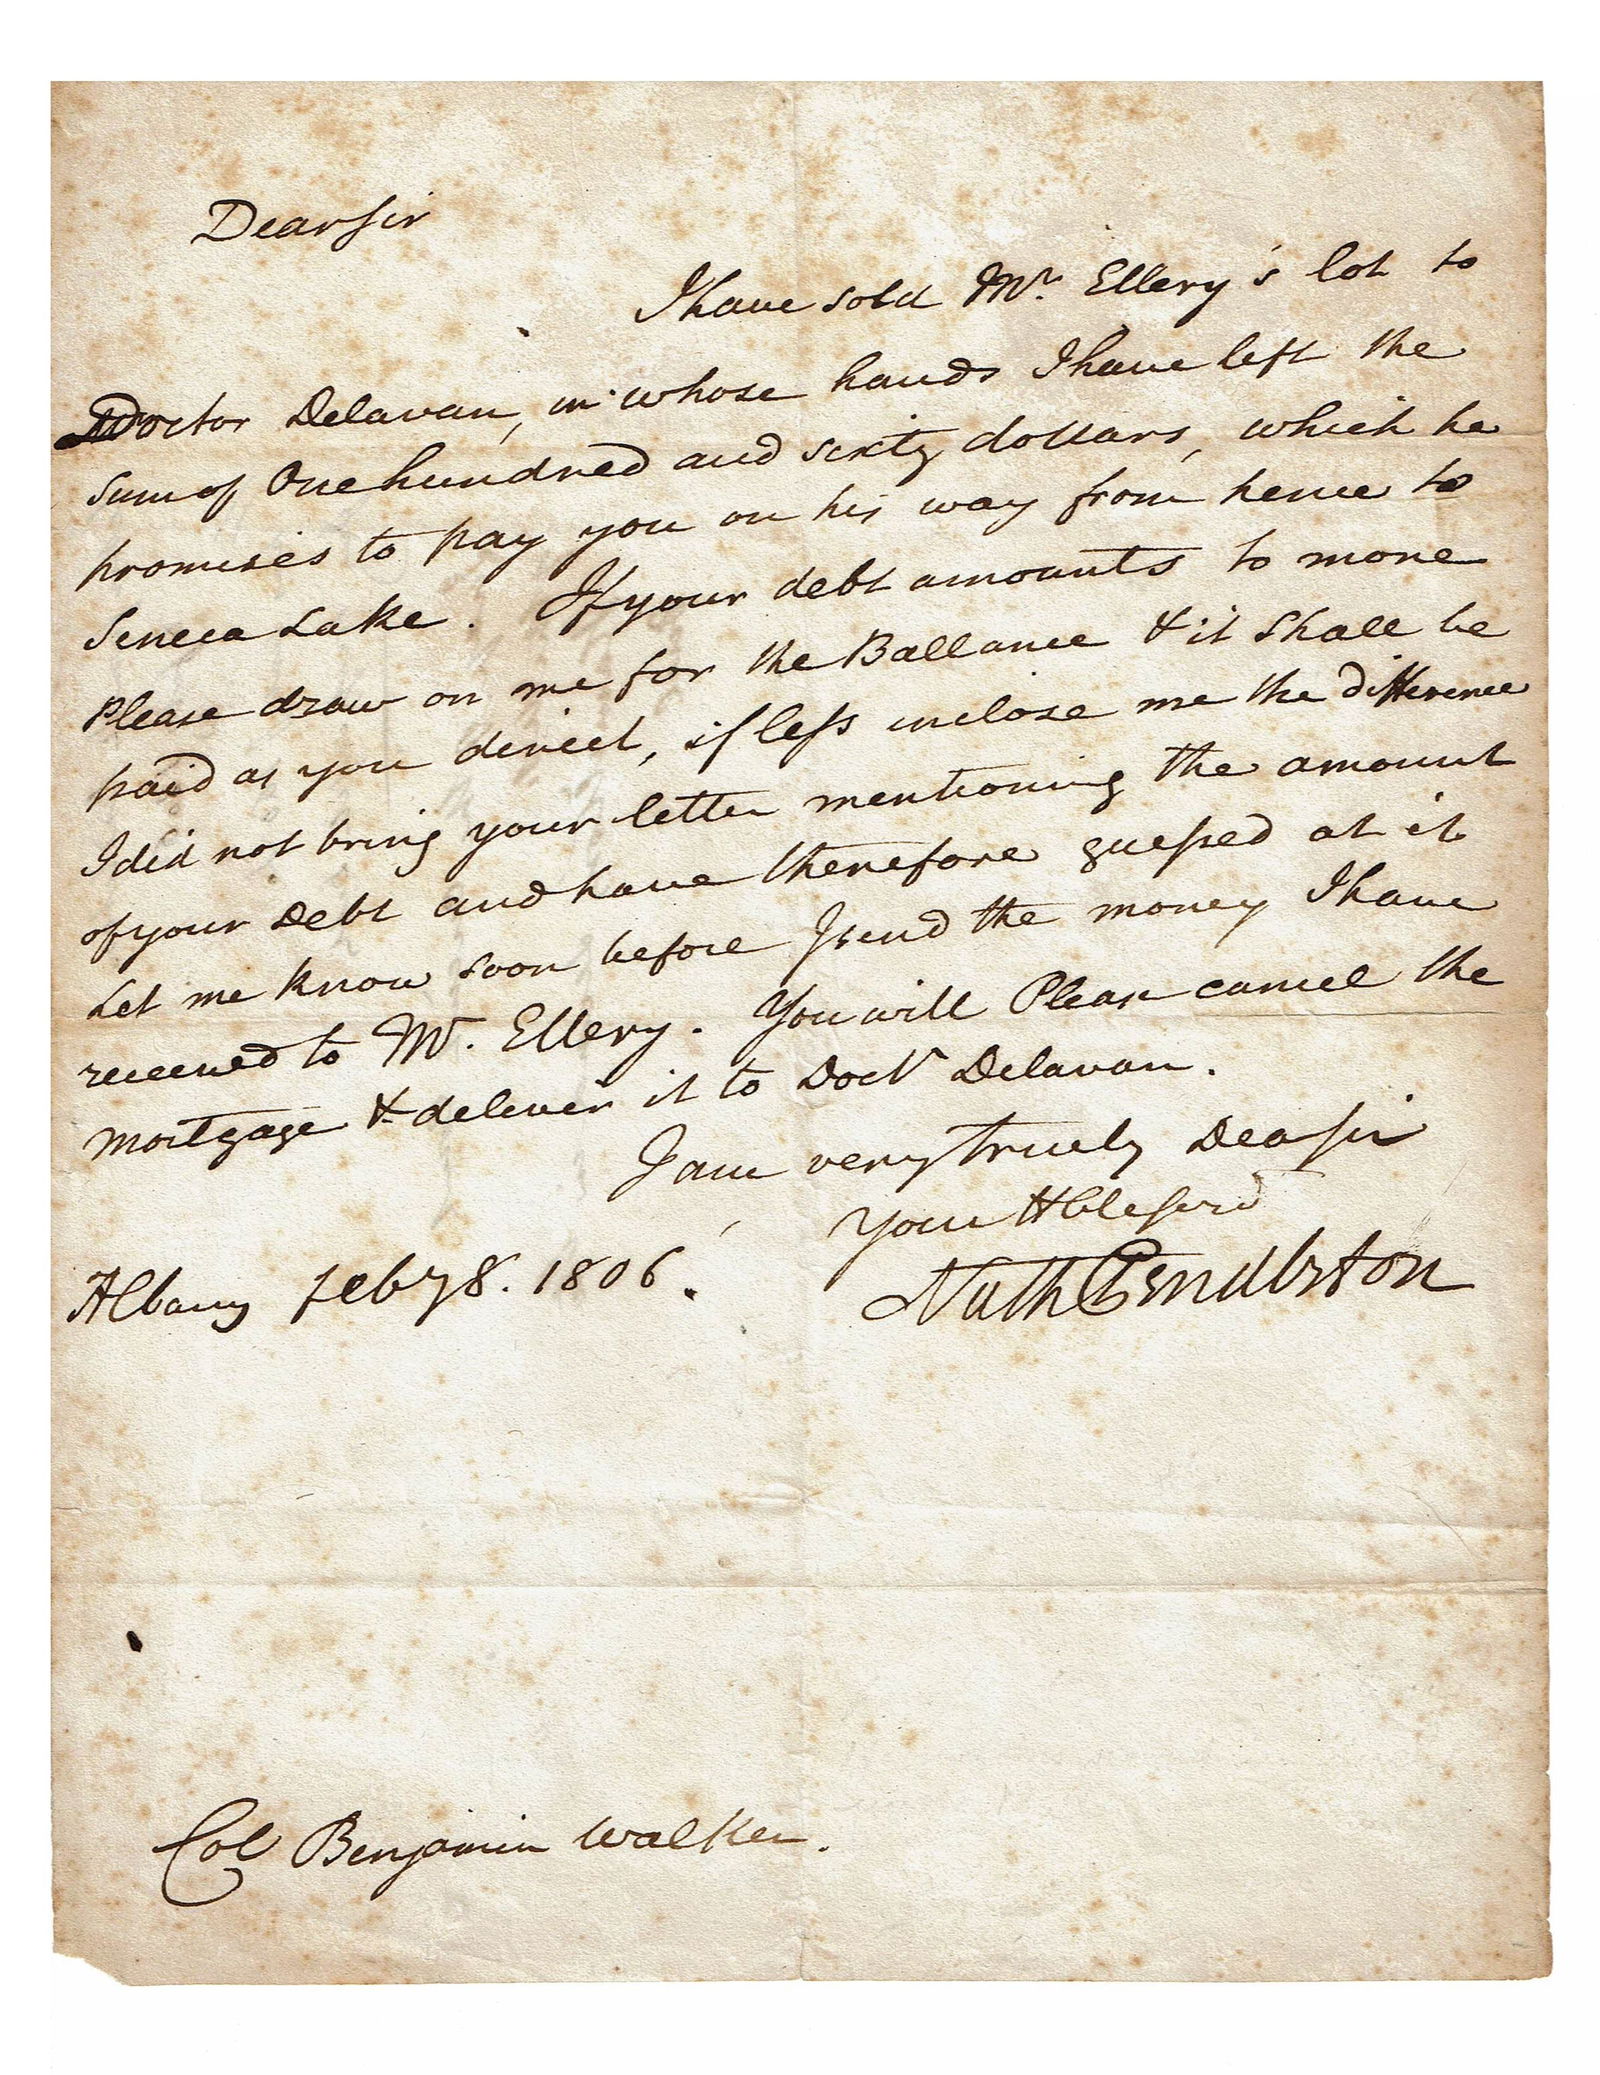 Dear Sir
I have sold Mr. Ellery's lot to
Doctor Delavan, in whose hands I have left the
sum of One hundred and sixty dollars, which he
promises to pay you on his way from hence to
Seneca Lake. If your debt amounts to more
Please draw on me for the Ballance & it shall be
paid as you direct, if less inclose me the difference
I did not bring your letter mentioning the amount
of your Debt and have therefore guessed at it
Let me know soon before I send the money I have
receeved to Mr. Ellery. You will Please cancel the
mortgage & deliver it to Doctr Delavan.
I am very truely Dear Sir
Your Hble Serv
Nath Pendleton
Albany Feby 8. 1806.
Col Benjamin Walker.